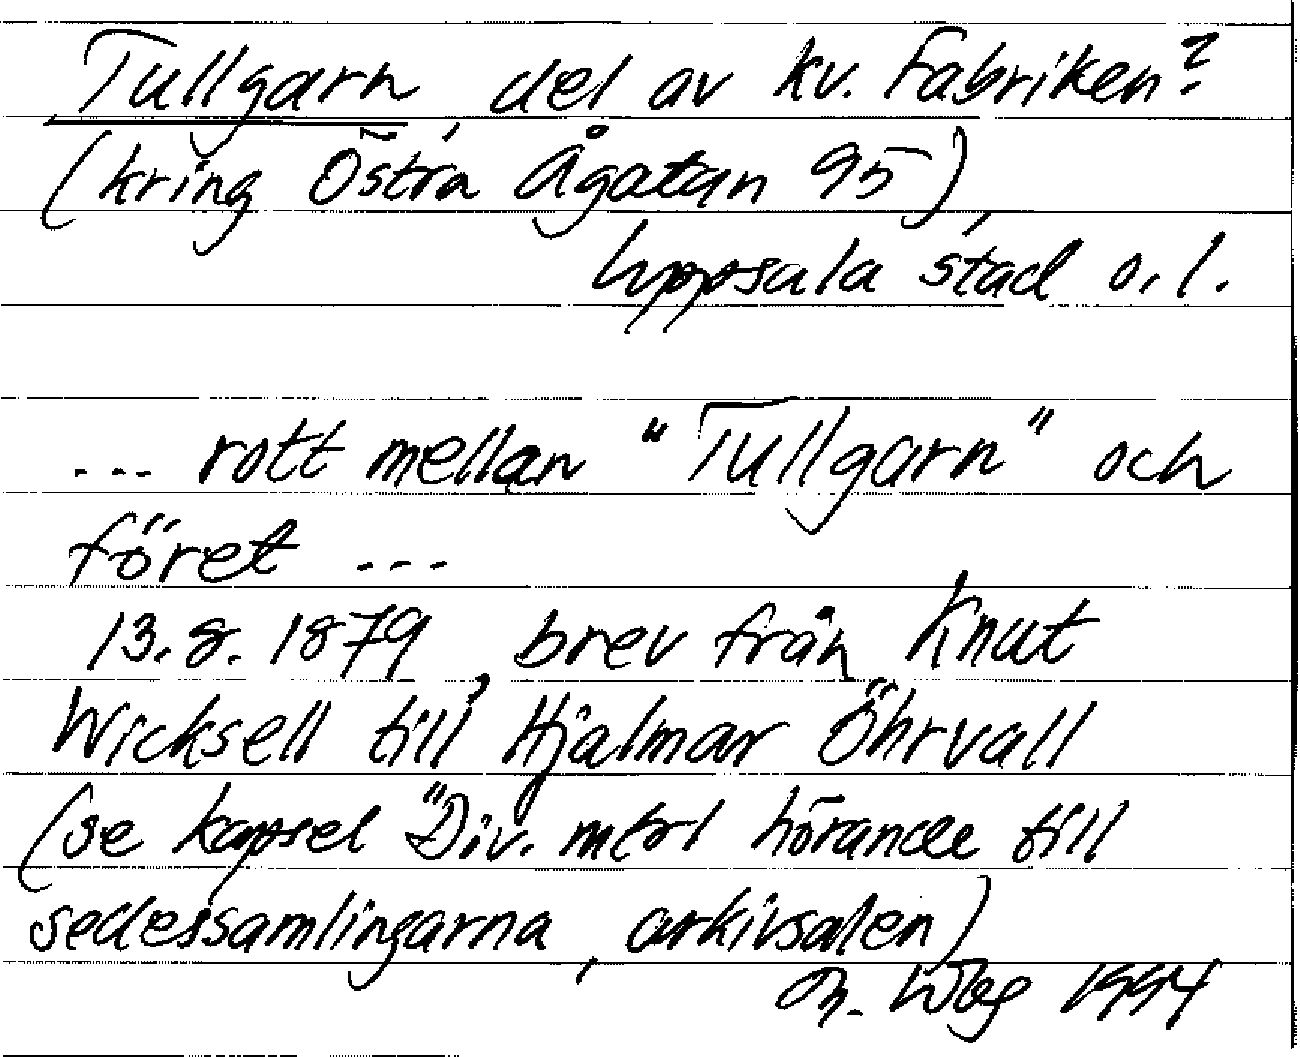 Tullgarn, del av kv. Fabriken?
(kring Östra Ågatan 95),
Uppsala stad o. l.
... rott mellan "Tullgarn" och
föret ...
13.8.1879, brev från Knut
Wicksell till Hjalmar Öhrvall
(se kapsel "Div. mtrl hörande till
sedessamlingarna, arkivsalen)
1994